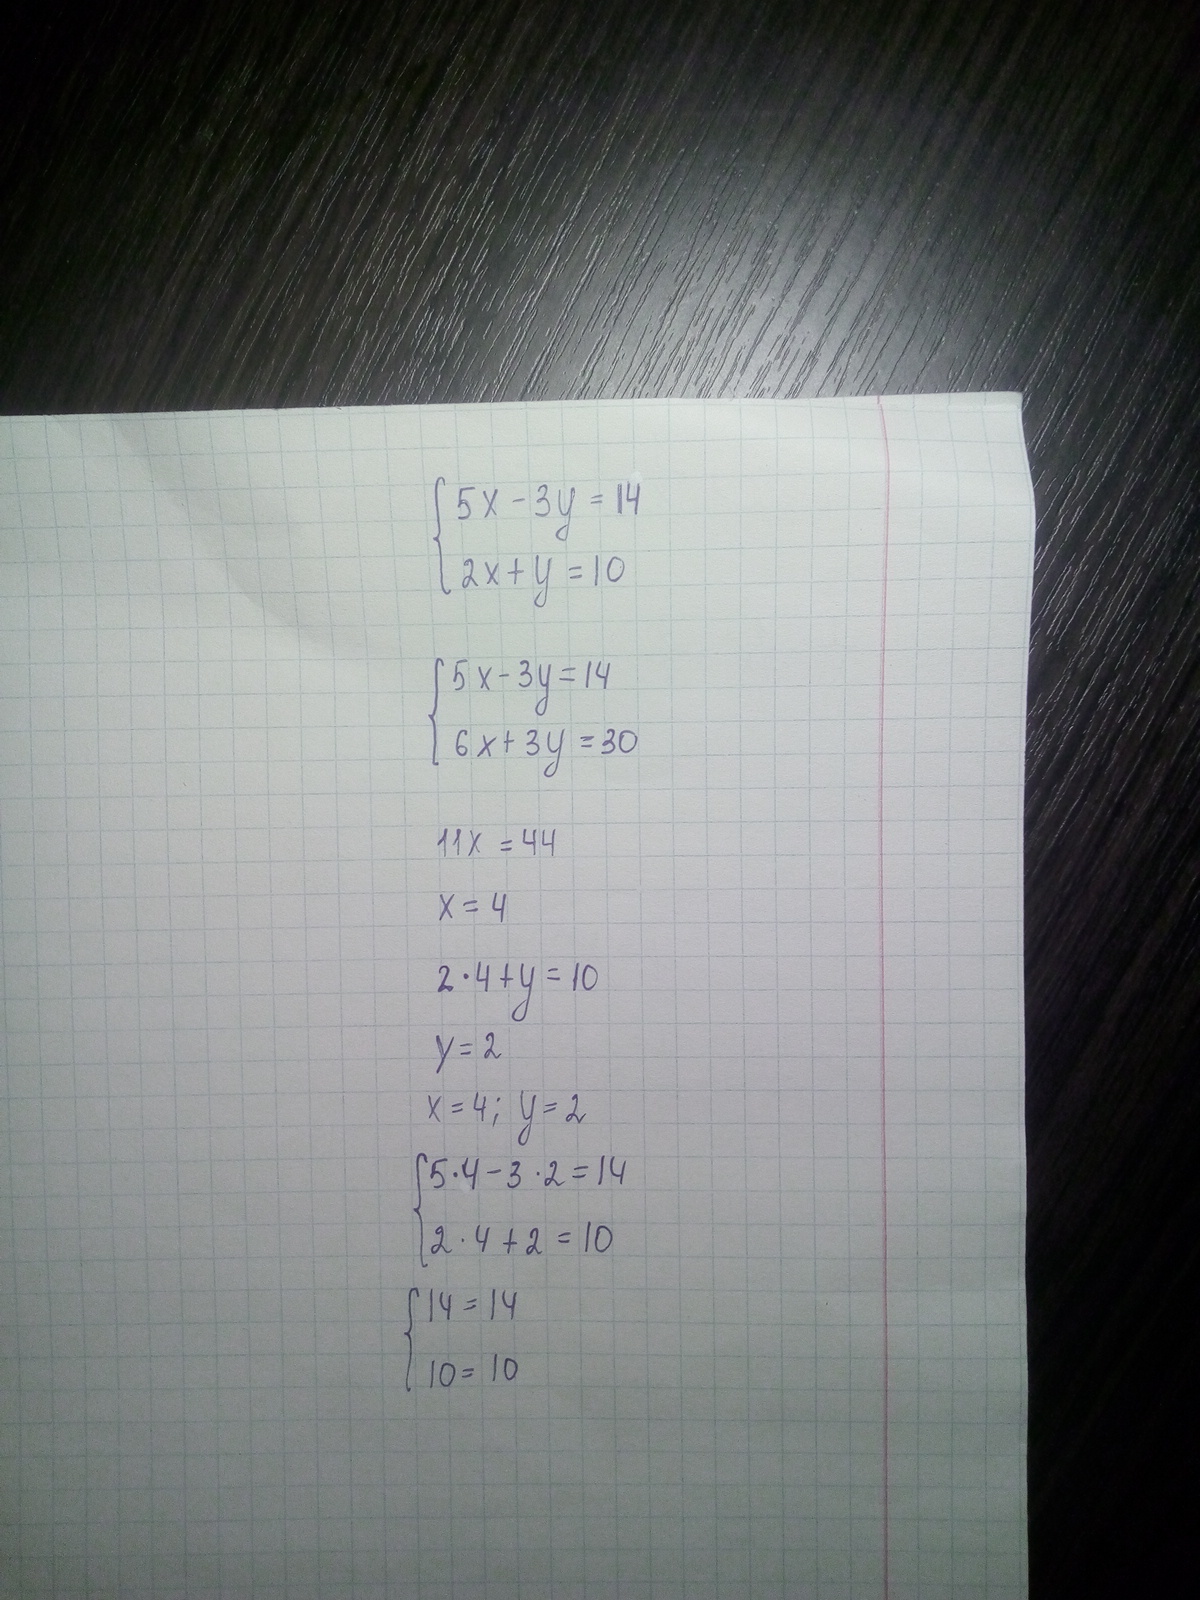 5x - 3y = 14
2x + y = 10
5x - 3y = 14
6x + 3y = 30
11x = 44
x = 4
2 · 4 + y = 10
y = 2
x = 4; y = 2
5 · 4 - 3 · 2 = 14
2 · 4 + 2 = 10
14 = 14
10 = 10